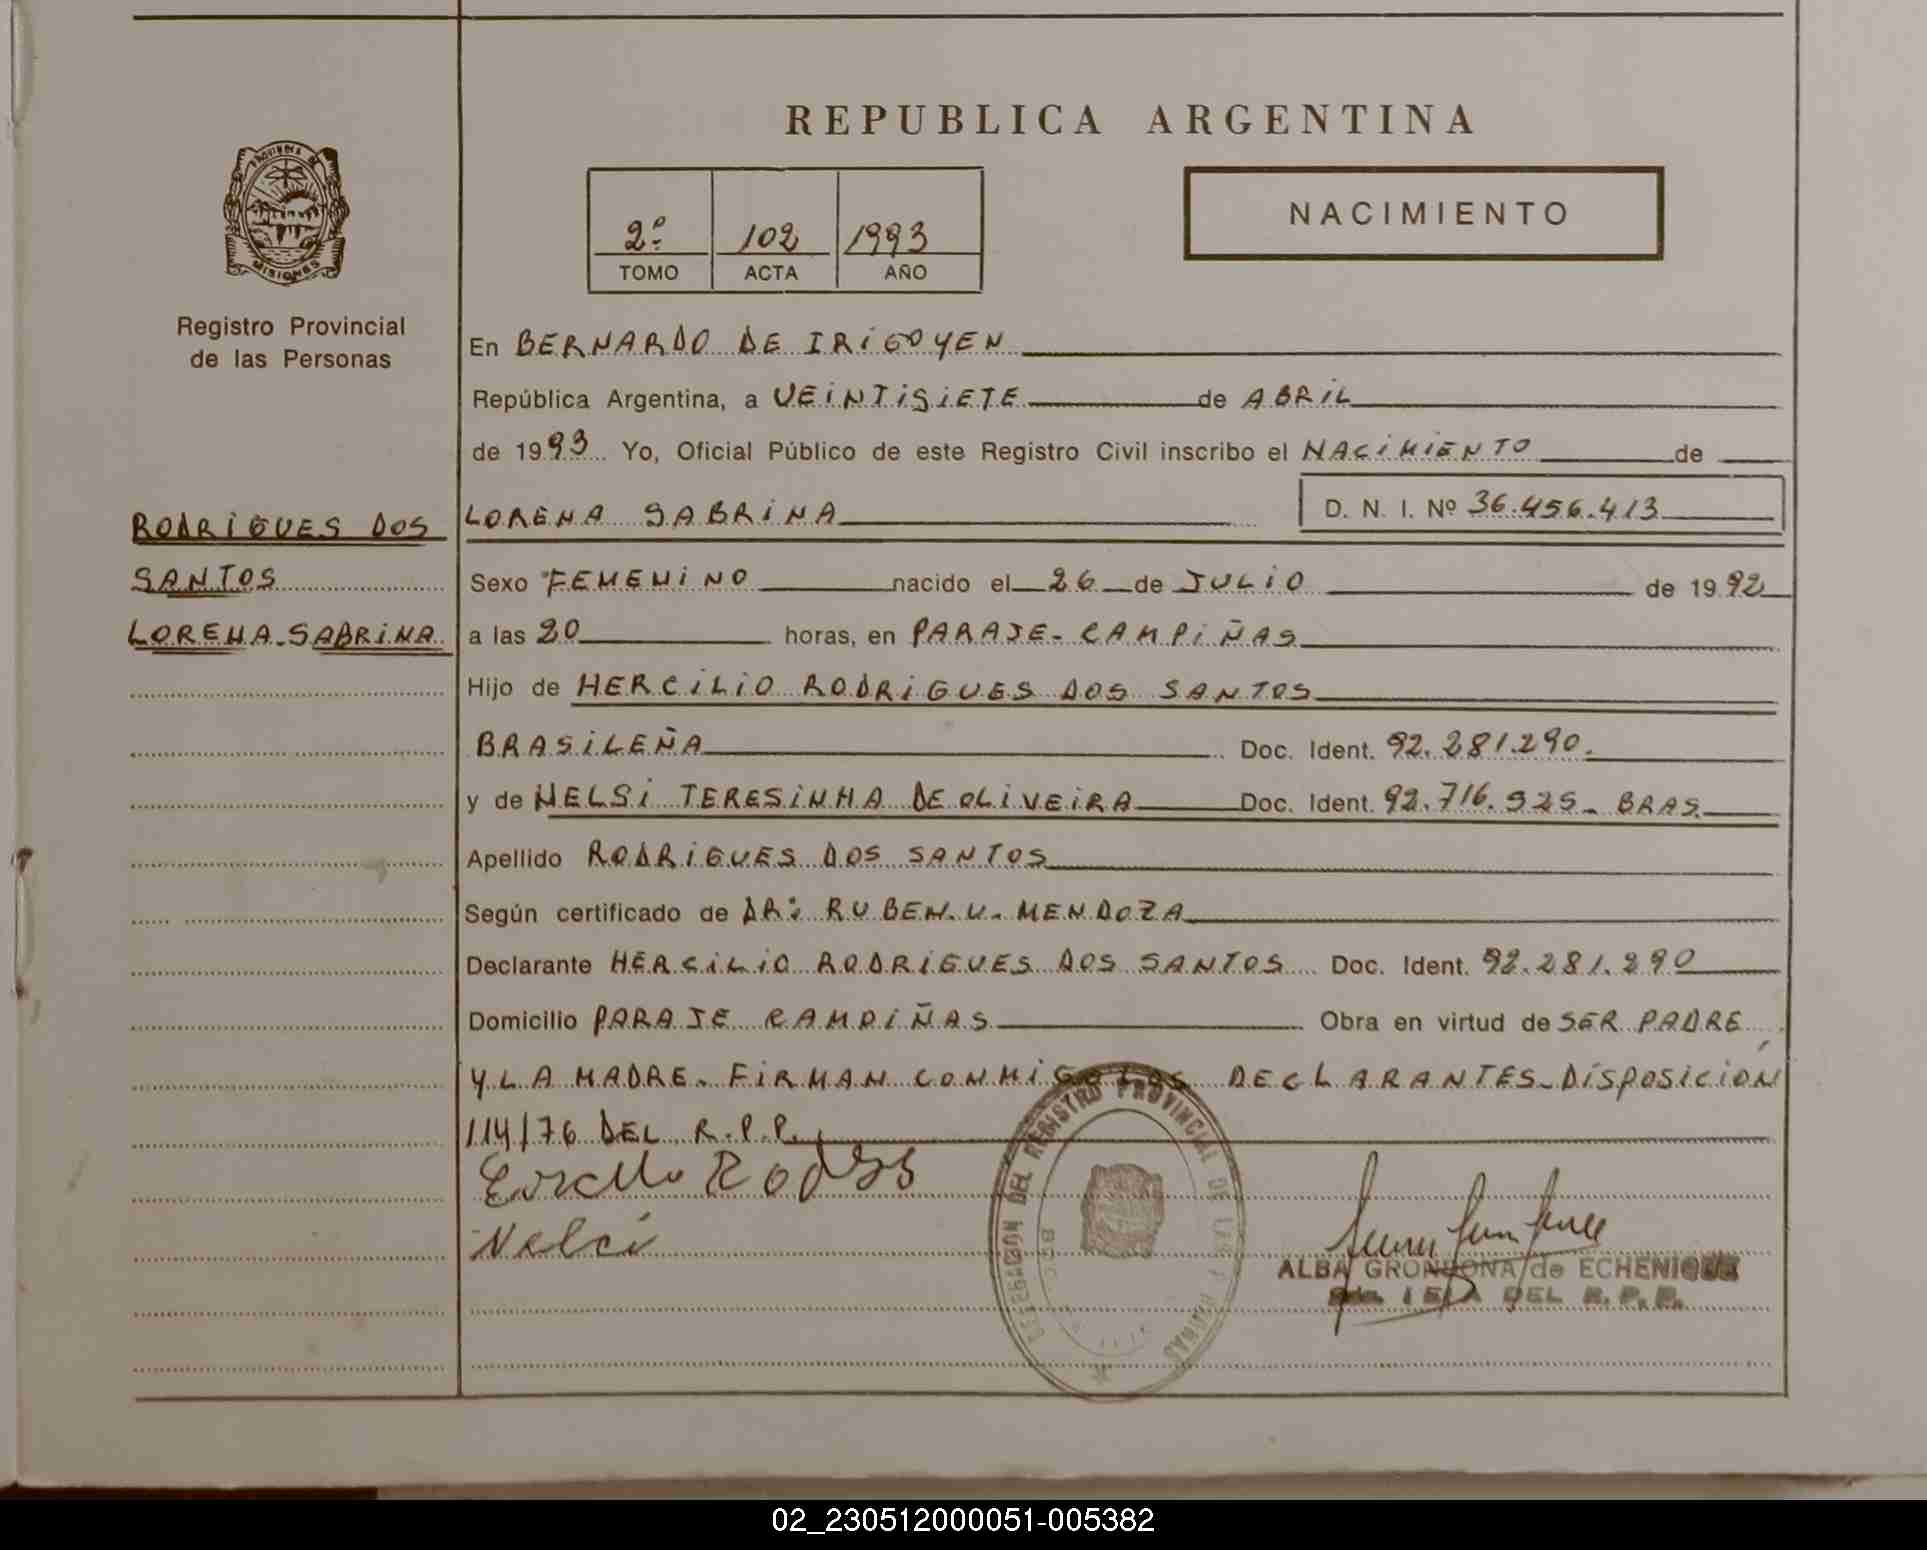 REPUBLICA ARGENTINA
PROVINCIA DE
MISIONES
Registro Provincial
de las Personas
2º 102 1993
TOMO ACTA AÑO
NACIMIENTO
En BERNARDO DE IRIGOYEN
República Argentina, a VEINTISIETE de ABRIL
de 1993 Yo, Oficial Público de este Registro Civil inscribo el NACIMIENTO de
RODRIGUES DOS
SANTOS
LORENA SABRINA
LORENA SABRINA D. N. I. Nº 36.456.413
Sexo FEMENINO nacido el 26 de JULIO de 1992
a las 20 horas, en PARAJE CAMPIÑAS
Hijo de HERCILIO RODRIGUES DOS SANTOS
BRASILEÑA Doc. Ident. 92.281.290.
y de NELSI TERESINHA DE OLIVEIRA Doc. Ident. 92.716.525 BRAS.
Apellido RODRIGUES DOS SANTOS
Según certificado de DR: RUBEN. U. MENDOZA
Declarante HERCILIO RODRIGUES DOS SANTOS Doc. Ident. 92.281.290
Domicilio PARAJE CAMPIÑAS Obra en virtud de SER PADRE
Y LA MADRE. FIRMAN CONMIGO LOS DECLARANTES-DISPOSICIÓN
114/76 DEL R.P.P.
Nelci
DELEGACION DEL REGISTRO PROVINCIAL DE LAS PERSONAS
ALBA GRONDONA de ECHENIQUE
DEL R. P. P.
02_230512000051-005382